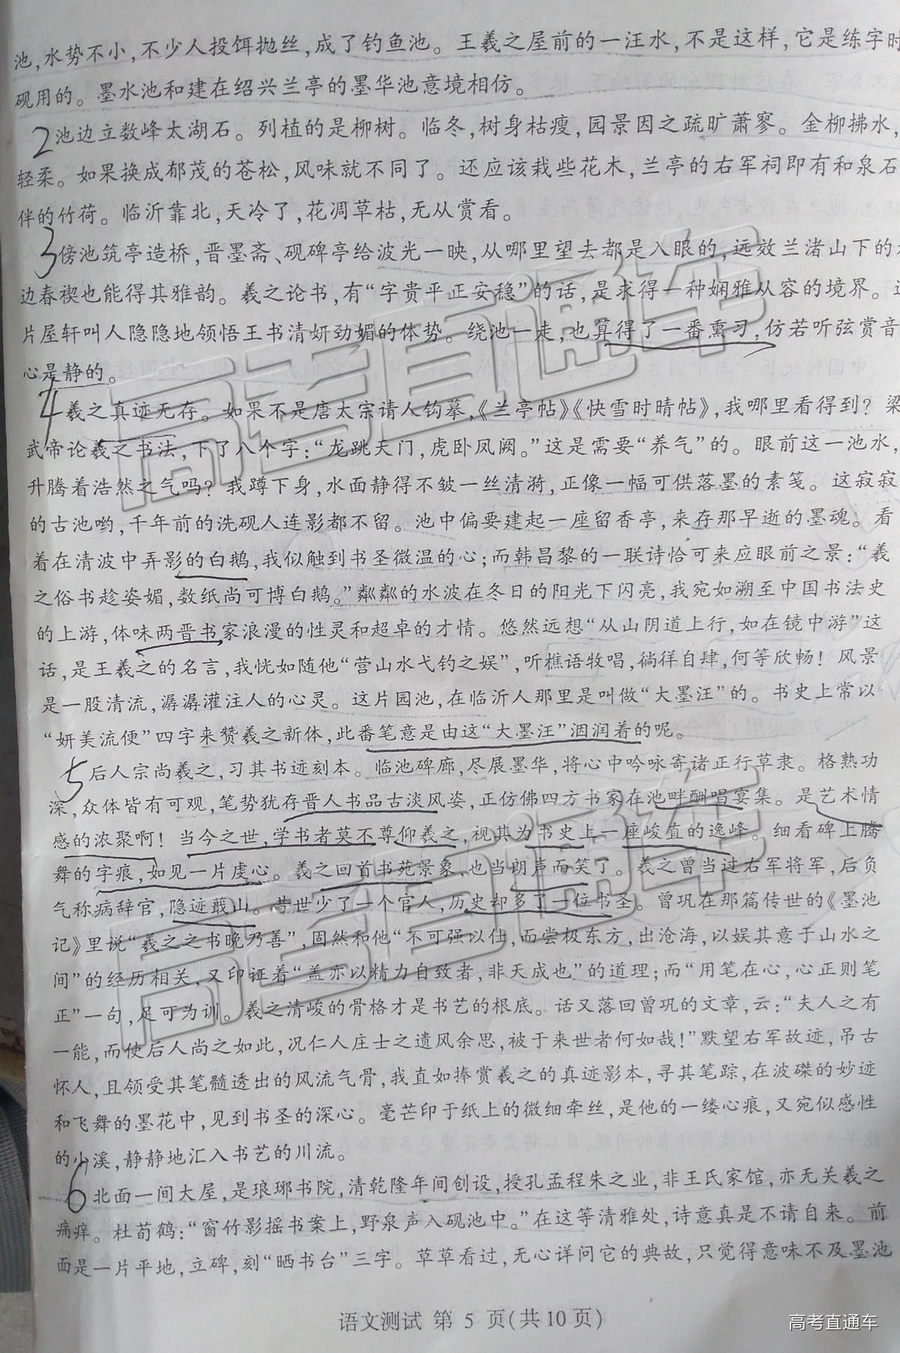 池,水势不小,不少人投饵抛丝,成了钓鱼池。王羲之屋前的一汪水,不是这样,它是练字时
砚用的。墨水池和建在绍兴兰亭的墨华池意境相仿。
2 池边立数峰太湖石。列植的是柳树。临冬,树身枯瘦,园景因之疏旷萧寥。金柳拂水,
轻柔。如果换成郁茂的苍松,风味就不同了。还应该栽些花木,兰亭的右军祠即有和泉石
伴的竹荷。临沂靠北,天冷了,花凋草枯,无从赏看。
3 傍池筑亭造桥,晋墨斋、砚碑亭给波光一映,从哪里望去都是入眼的,远效兰渚山下的
边春禊也能得其雅韵。羲之论书,有“字贵平正安稳”的话,是求得一种娴雅从容的境界。
片屋轩叫人隐隐地领悟王书清妍劲媚的体势。绕池一走,也算得了一番熏习,仿若听弦赏音
心是静的。
4 羲之真迹无存。如果不是唐太宗请人钩摹,《兰亭帖》《快雪时晴帖》,我哪里看得到?梁
武帝论羲之书法,下了八个字:“龙跳天门,虎卧凤阙。”这是需要“养气”的。眼前这一池水,
升腾着浩然之气吗?我蹲下身,水面静得不皱一丝清漪,正像一幅可供落墨的素笺。这寂寂
的古池哟,千年前的洗砚人连影都不留。池中偏要建起一座留香亭,来存那早逝的墨魂。看
着在清波中弄影的白鹅,我似触到书圣微温的心;而韩昌黎的一联诗恰可来应眼前之景:“羲
之俗书趁姿媚,数纸尚可博白鹅。”粼粼的水波在冬日的阳光下闪亮,我宛如溯至中国书法史
的上游,体味两晋书家浪漫的性灵和超卓的才情。悠然远想“从山阴道上行,如在镜中游”这
话,是王羲之的名言,我恍如随他“营山水弋钓之娱”,听樵语牧唱,徜徉自肆,何等欣畅!风景
是一股清流,潺潺灌注人的心灵。这片园池,在临沂人那里是叫做“大墨汪”的。书史上常以
“妍美流便”四字来赞羲之新体,此番笔意是由这“大墨汪”洇润着的呢。
5 后人宗尚羲之,习其书迹刻本。临池碑廊,尽展墨华,将心中吟咏寄诸正行草隶。格熟功
深,众体皆有可观,笔势犹存晋人书品古淡风姿,正仿佛四方书家在池畔酬唱宴集。是艺术情
感的浓聚啊!当今之世,学书者莫不尊仰羲之,视其为书史上一座峻直的逸峰。细看碑上腾
舞的字痕,如见一片虔心。羲之回首书苑景象,也当朗声而笑了。羲之曾当过右军将军,后负
气称病辞官,隐迹蕺山。昔世少了一个官人,历史却多了一位书圣。曾巩在那篇传世的《墨池
记》里说“羲之之书晚乃善”,固然和他“不可强以仕,而尝极东方,出沧海,以娱其意于山水之
间”的经历相关,又印证着“盖亦以精力自致者,非天成也”的道理;而“用笔在心,心正则笔
正”一句,足可为训。羲之清峻的骨格才是书艺的根底。话又落回曾巩的文章,云:“夫人之有
一能,而使后人尚之如此,况仁人庄士之遗风余思,被于来世者何如哉!”默望右军故迹,吊古
怀人,且领受其笔髓透出的风流气骨,我直如捧赏羲之的真迹影本,寻其笔踪,在波磔的妙迹
和飞舞的墨花中,见到书圣的深心。毫芒印于纸上的微细牵丝,是他的一缕心痕,又宛似感性
的小溪,静静地汇入书艺的川流。
6 北面一间大屋,是琅琊书院,清乾隆年间创设,授孔孟程朱之业,非王氏家馆,亦无关羲之
痛痒。杜荀鹤:“窗竹影摇书案上,野泉声入砚池中。”在这等清雅处,诗意真是不请自来。前
面是一片平地,立碑,刻“晒书台”三字。草草看过,无心详问它的典故,只觉得意味不及墨池
语文测试 第 5 页(共10页)
高考直通车
高考直通车
高考直通车